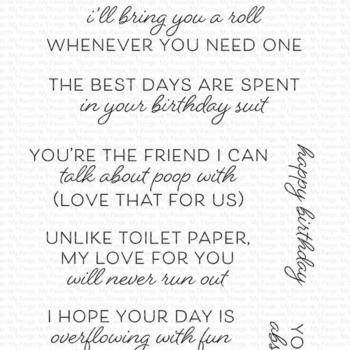 i'll bring you a roll
WHENEVER YOU NEED ONE
THE BEST DAYS ARE SPENT
in your birthday suit
YOU'RE THE FRIEND I CAN
talk about poop with
(LOVE THAT FOR US)
UNLIKE TOILET PAPER,
MY LOVE FOR YOU
will never run out
I HOPE YOUR DAY IS
overflowing with fun
happy birthday
YO
abs